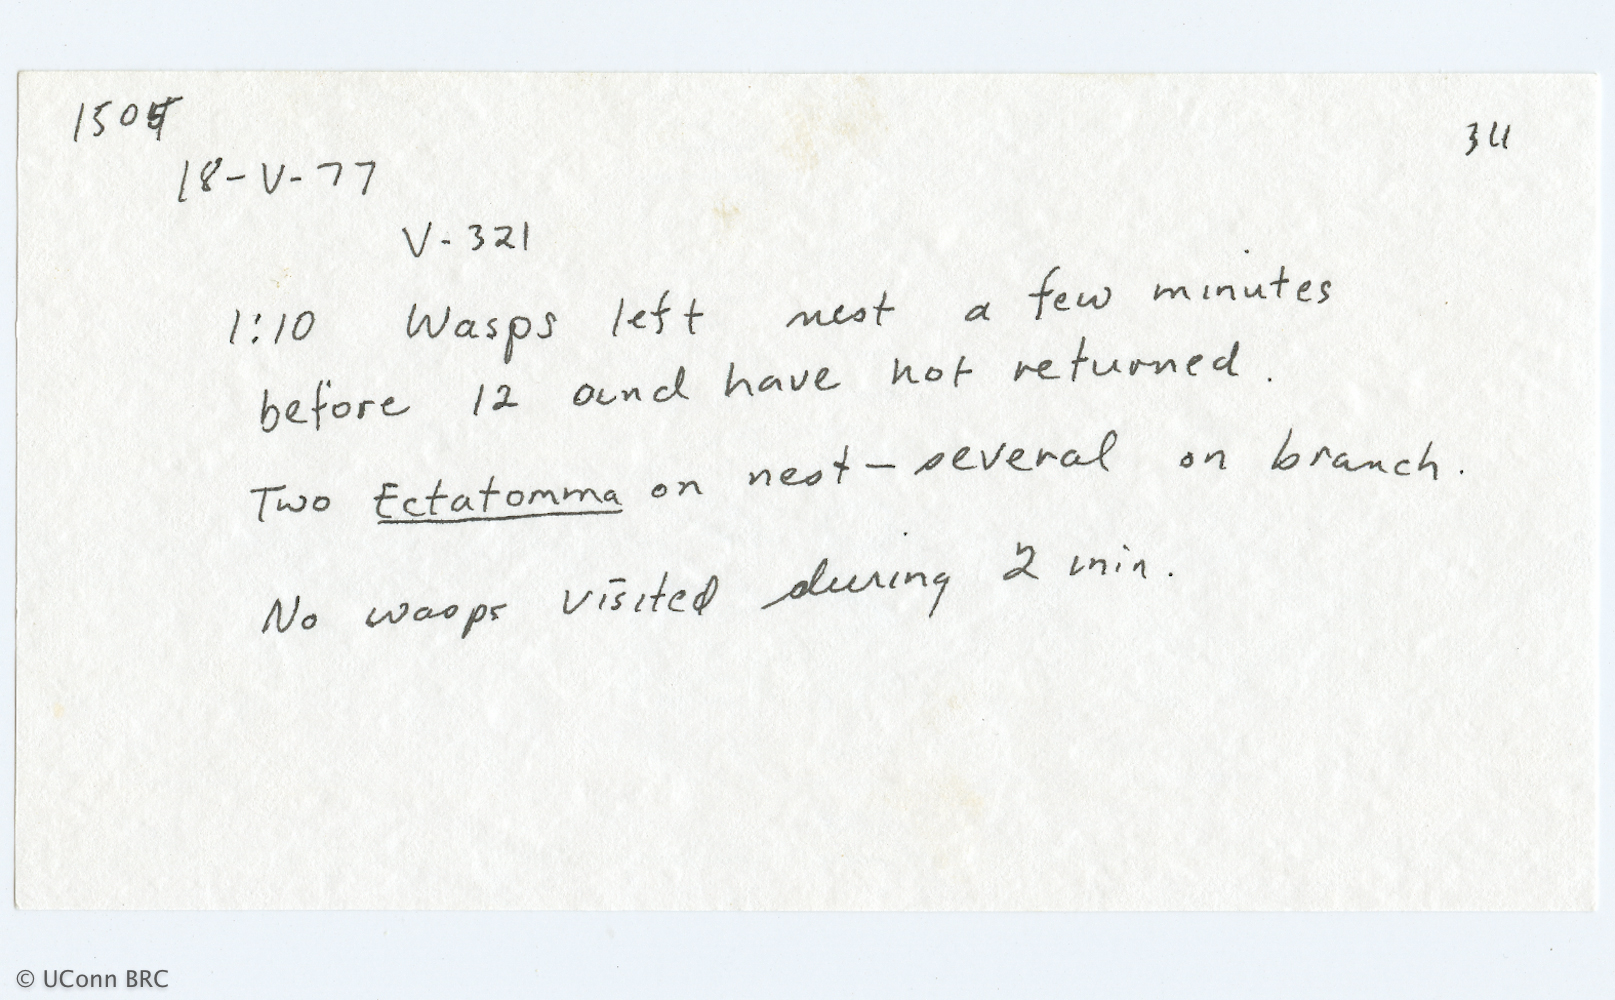 34
18-V-77
V-321
1:10 Wasps left nest a few minutes
before 12 and have not returned.
Two Ectatomma on nest – several on branch.
No wasps visited during 2 min.
© UConn BRC